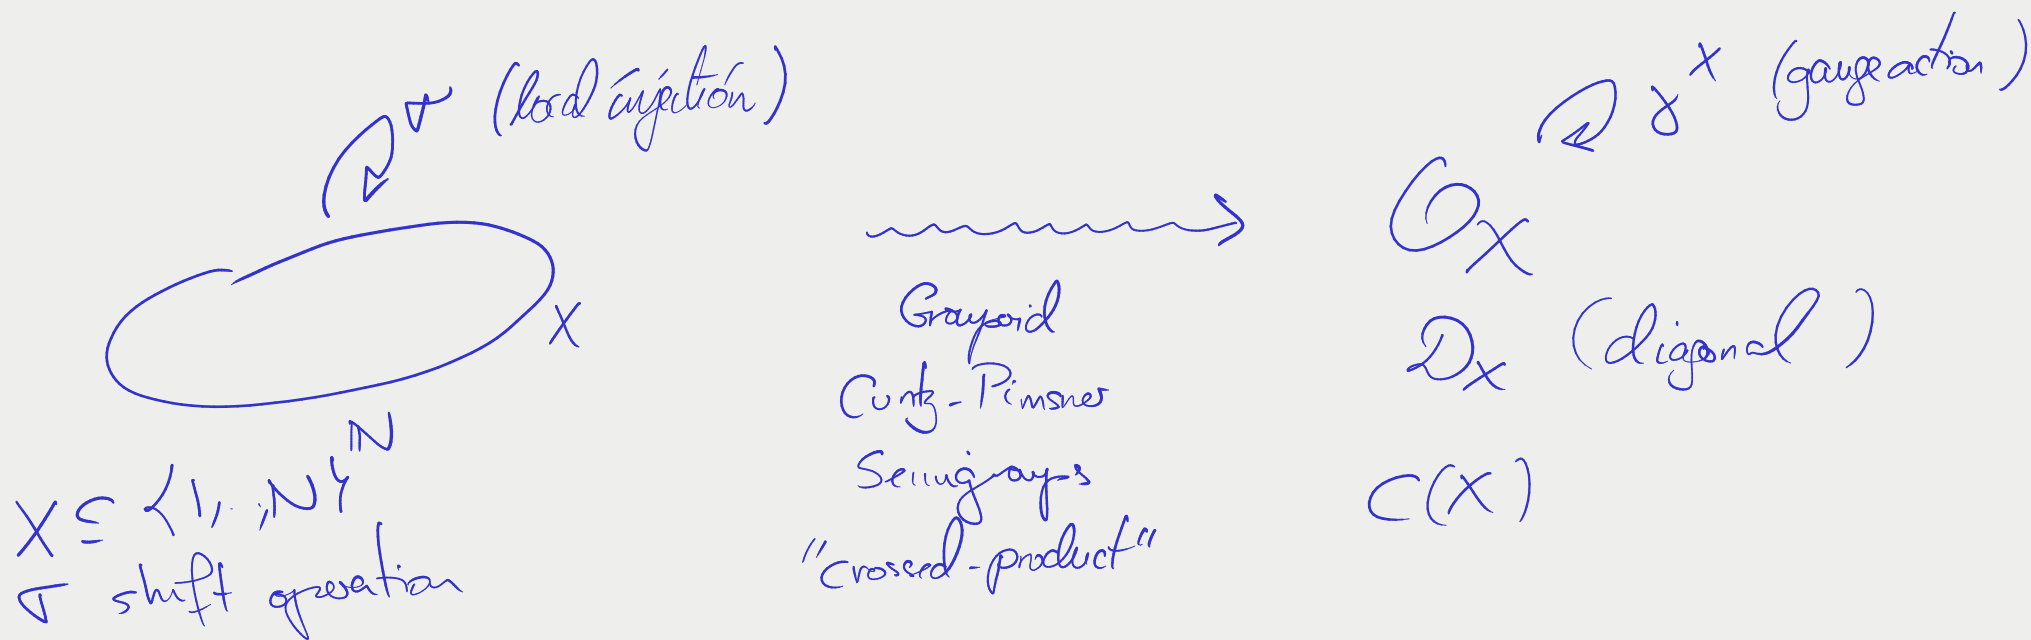 σ (local injection)
X
X ⊆ {1,..,N}^ℕ
σ shift operation
Groupoid
Cuntz-Pimsner
Semigroups
"crossed-product"
γ^X (gauge action)
O_X
D_X (diagonal)
C(X)